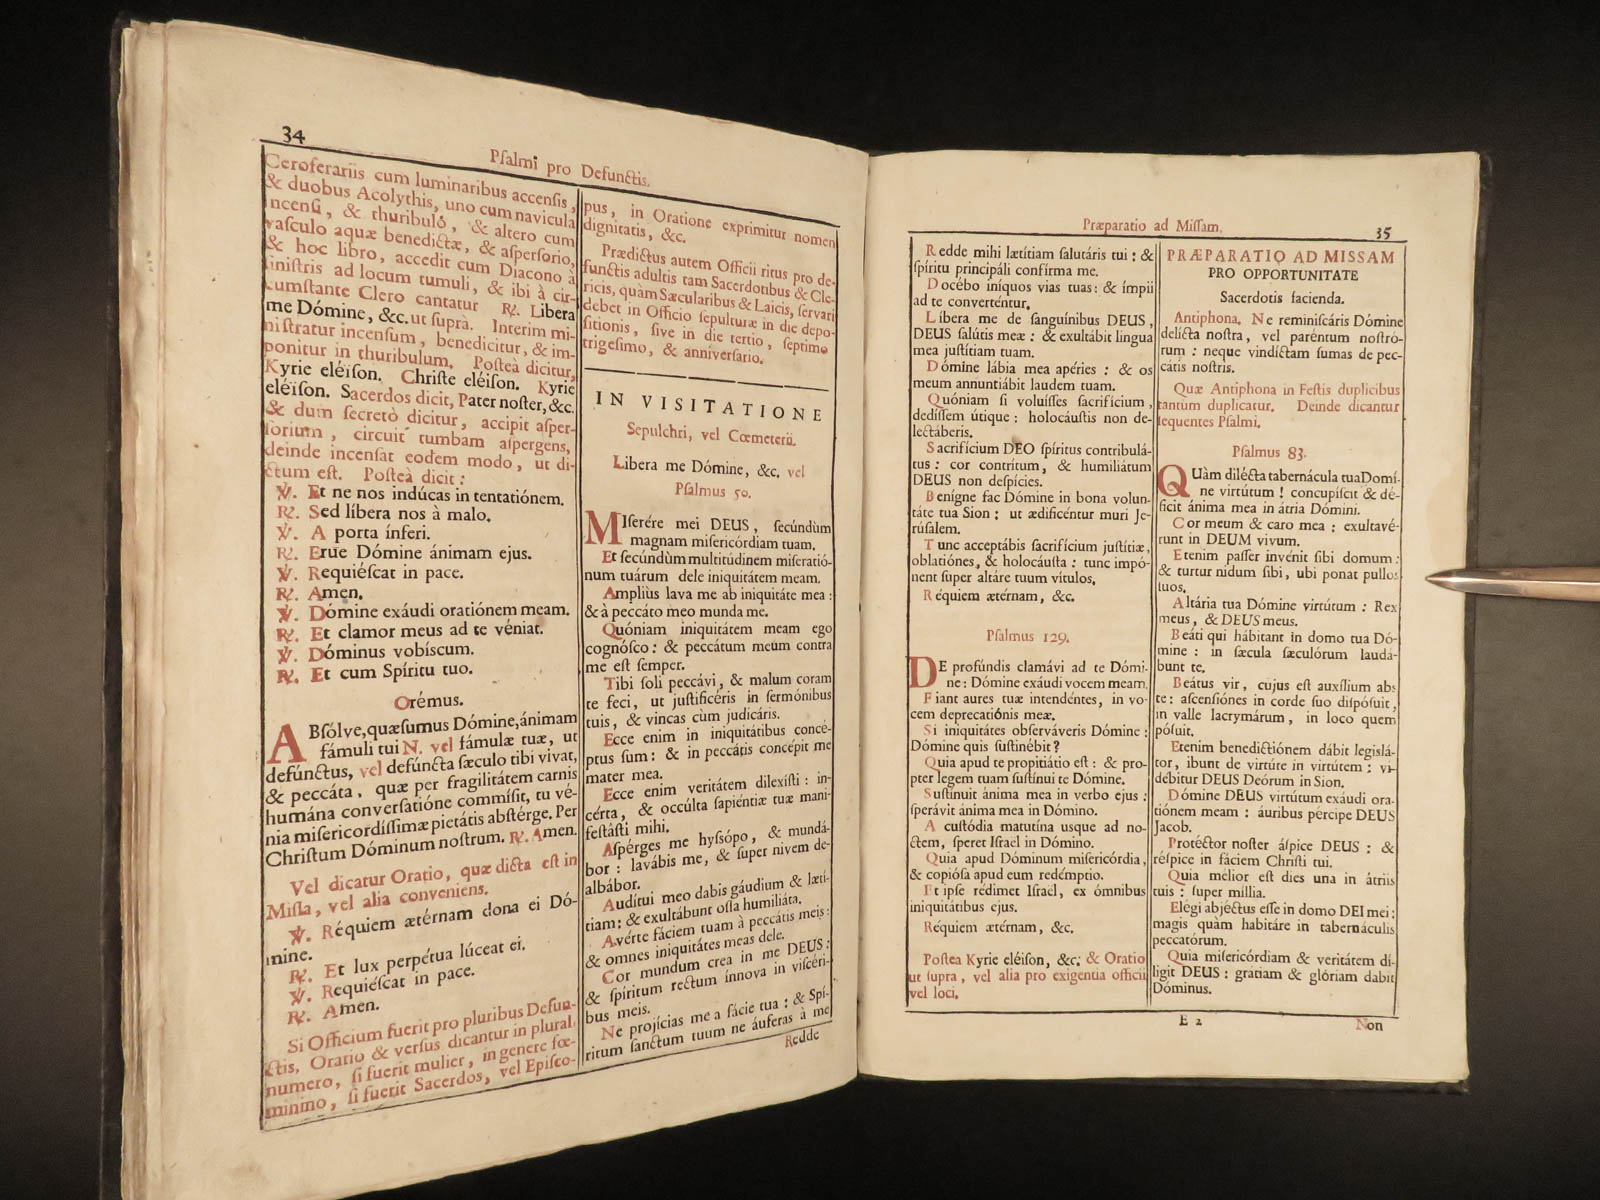 34
Pſalmi pro Defunctis.
Ceroferariis cum luminaribus accenſis,
& duobus Acolythis, uno cum navicula
incenſi, & thuribuló, & altero cum
vaſculo aquæ benedictæ, & aſperſorio,
& hoc libro, accedit cum Diacono à
ſiniſtris ad locum tumuli, & ibi à cir-
cumſtante Clero cantatur ℟. Libera
me Dómine, &c. ut ſuprà. Interim mi-
niſtratur incenſum, benedicitur, & im-
ponitur in thuribulum. Poſteà dicitur,
Kyrie eléiſon. Chriſte eléiſon. Kyrie
eléiſon. Sacerdos dicit, Pater noſter, &c.
& dum ſecretò dicitur, accipit aſper-
ſorium, circuit tumbam aſpergens,
deinde incenſat eodem modo, ut di-
ctum eſt. Poſteà dicit:
℣. Et ne nos indúcas in tentatiónem.
℟. Sed líbera nos à malo.
℣. A porta ínferi.
℟. Erue Dómine ánimam ejus.
℣. Requiéſcat in pace.
℟. Amen.
℣. Dómine exáudi oratiónem meam.
℟. Et clamor meus ad te véniat.
℣. Dóminus vobíſcum.
℟. Et cum Spíritu tuo.
Orémus.
ABſólve, quæſumus Dómine, ánimam
fámuli tui N. vel fámulæ tuæ, ut
defúnctus, vel defúncta ſæculo tibi vivat,
& peccáta, quæ per fragilitátem carnis
humána converſatióne commíſit, tu vé-
nia miſericordíſſimæ pietátis abſtérge. Per
Chriſtum Dóminum noſtrum. ℟. Amen.
Vel dicatur Oratio, quæ dicta eſt in
Miſſa, vel alia conveniens.
℣. Réquiem ætérnam dona ei Dó-
mine.
℟. Et lux perpétua lúceat ei.
℣. Requiéſcat in pace.
℟. Amen.
Si Officium fuerit pro pluribus Defun-
ctis, Oratio & verſus dicantur in plurali
numero, ſi fuerit mulier, in genere fœ-
minino, ſi fuerit Sacerdos, vel Epiſco-
pus, in Oratione exprimitur nomen
dignitatis, &c.
Prædictus autem Officii ritus pro de-
functis adultis tam Sacerdotibus & Cle-
ricis, quàm Sæcularibus & Laicis, ſervari
debet in Officio ſepulturæ in die depo-
ſitionis, ſive in die tertio, ſeptimo
trigeſimo, & anniverſario.
IN VISITATIONE
Sepulchri, vel Cœmeterii.
Libera me Dómine, &c. vel
Pſalmus 50.
MIſerére mei DEUS, ſecúndùm
magnam miſericórdiam tuam.
Et ſecúndùm multitúdinem miſeratió-
num tuárum dele iniquitátem meam.
Amplius lava me ab iniquitáte mea :
& à peccáto meo munda me.
Quóniam iniquitátem meam ego
cognóſco : & peccátum meum contra
me eſt ſemper.
Tibi ſoli peccávi, & malum coram
te feci, ut juſtificéris in ſermónibus
tuis, & vincas cùm judicáris.
Ecce enim in iniquitátibus concé-
ptus ſum : & in peccátis concépit me
mater mea.
Ecce enim veritátem dilexíſti : in-
cérta, & occúlta ſapiéntiæ tuæ mani-
feſtáſti mihi.
Aſpérges me hyſsópo, & mundá-
bor : lavábis me, & ſuper nivem de-
albábor.
Audítui meo dabis gáudium & læti-
tiam : & exultábunt oſſa humiliáta.
Avérte fáciem tuam à peccátis meis :
& omnes iniquitátes meas dele.
Cor mundum crea in me DEUS :
& ſpíritum rectum ínnova in viſcéri-
bus meis.
Ne projícias me a fácie tua : & Spí-
ritum ſanctum tuum ne áuferas à me
Redde
Præparatio ad Miſſam.
35
Redde mihi lætítiam ſalutáris tui : &
ſpíritu principáli confírma me.
Docébo iníquos vias tuas : & ímpii
ad te converténtur.
Líbera me de ſanguínibus DEUS,
DEUS ſalútis meæ : & exultábit lingua
mea juſtítiam tuam.
Dómine lábia mea apéries : & os
meum annuntiábit laudem tuam.
Quóniam ſi voluíſſes ſacrifícium,
dedíſſem útique : holocáuſtis non de-
lectáberis.
Sacrifícium DEO ſpíritus contribulá-
tus : cor contrítum, & humiliátum
DEUS non deſpícies.
Benígne fac Dómine in bona volun-
táte tua Sion : ut ædificéntur muri Je-
rúſalem.
Tunc acceptábis ſacrifícium juſtítiæ,
oblatiónes, & holocáuſta : tunc impó-
nent ſuper altáre tuum vítulos.
Réquiem ætérnam, &c.
Pſalmus 129.
DE profúndis clamávi ad te Dómi-
ne : Dómine exáudi vocem meam.
Fiant aures tuæ intendéntes, in vo-
cem deprecatiónis meæ.
Si iniquitátes obſerváveris Dómine :
Dómine quis ſuſtinébit?
Quia apud te propitiátio eſt : & pro-
pter legem tuam ſuſtínui te Dómine.
Suſtínuit ánima mea in verbo ejus :
ſperávit ánima mea in Dómino.
A cuſtódia matutína usque ad no-
ctem, ſperet Iſraël in Dómino.
Quia apud Dóminum miſericórdia,
& copióſa apud eum redémptio.
Et ipſe rédimet Iſraël, ex ómnibus
iniquitátibus ejus.
Réquiem ætérnam, &c.
Poſtea Kyrie eléiſon, &c. & Oratio
ut ſupra, vel alia pro exigentia officii
vel loci.
E 2
PRÆPARATIO AD MISSAM
PRO OPPORTUNITATE
Sacerdotis facienda.
Antiphona. Ne reminiſcáris Dómine
delícta noſtra, vel paréntum noſtró-
rum : neque vindíctam ſumas de pec-
cátis noſtris.
Quæ Antiphona in Feſtis duplicibus
tantum duplicatur. Deinde dicantur
ſequentes Pſalmi.
Pſalmus 83.
QUàm diléčta tabernácula tua Dómi-
ne virtútum ! concupíſcit & dé-
ficit ánima mea in átria Dómini.
Cor meum & caro mea : exultavé-
runt in DEUM vivum.
Etenim paſſer invénit ſibi domum :
& turtur nidum ſibi, ubi ponat pullos
tuos.
Altária tua Dómine virtútum : Rex
meus, & DEUS meus.
Beáti qui hábitant in domo tua Dó-
mine : in ſæcula ſæculórum laudá-
bunt te.
Beátus vir, cujus eſt auxílium abs
te : aſcenſiónes in corde ſuo diſpóſuit,
in valle lacrymárum, in loco quem
póſuit.
Etenim benedictiónem dábit legislá-
tor, ibunt de virtúte in virtútem : vi-
débitur DEUS Deórum in Sion.
Dómine DEUS virtútum exáudi ora-
tiónem meam : áuribus pércipe DEUS
Jacob.
Protéctor noſter áſpice DEUS : &
réſpice in fáciem Chriſti tui.
Quia mélior eſt dies una in átriis
tuis : ſuper míllia.
Elégi abjéctus eſſe in domo DEI mei :
magis quàm habitáre in tabernáculis
peccatórum.
Quia miſericórdiam & veritátem dí-
ligit DEUS : grátiam & glóriam dabit
Dóminus.
Non